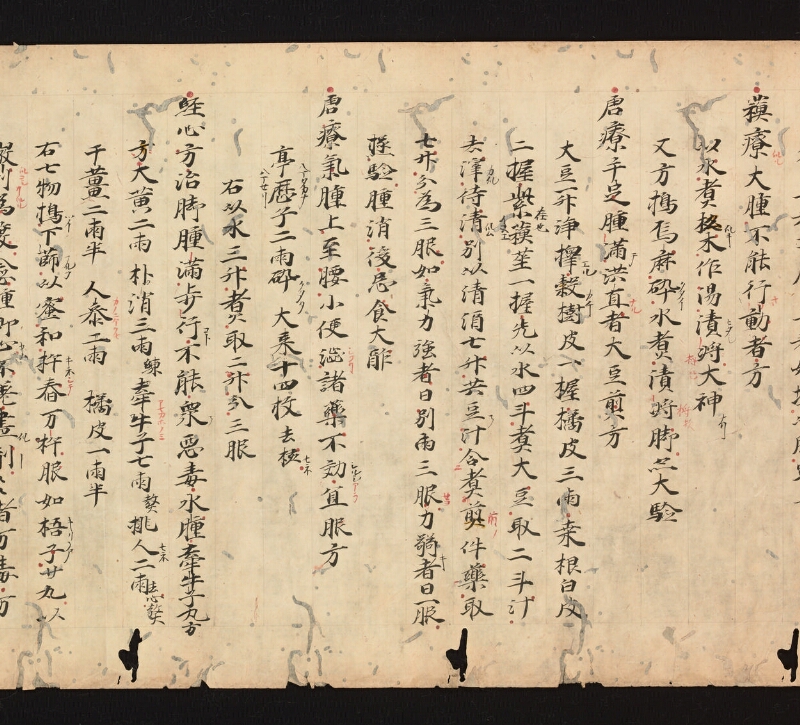 療大腫不能行動者方
以水煮楤木作湯漬將大神
又方搗烏麻碎水煮漬將脚亦大驗
唐療手足腫滿洪直者大豆煎方
大豆一升淨擇穀樹皮一握橘皮三兩桒根白皮
二握紫蘇莖一握先以水四斗煮大豆取二斗汁
去滓待清別以清酒七升共豆汁合煮煎件藥取
七升分為三服如氣力強者日別兩三服力弱者日一服
極驗腫消後忌食大酢
唐療氣腫上至腰小便澁諸藥不効宜服方
葶藶子二兩碎 大棗十四枚去核
右以水三升煮取二升分三服
經心方治脚腫滿步行不能衆惡毒水腫牽牛子丸方
方大黃二兩 朴消三兩練 牽牛子七兩熬 桃人二兩熬
干薑二兩半 人參二兩 橘皮一兩半
右七物搗下篩以蜜和杵舂万杵服如梧子廿丸以